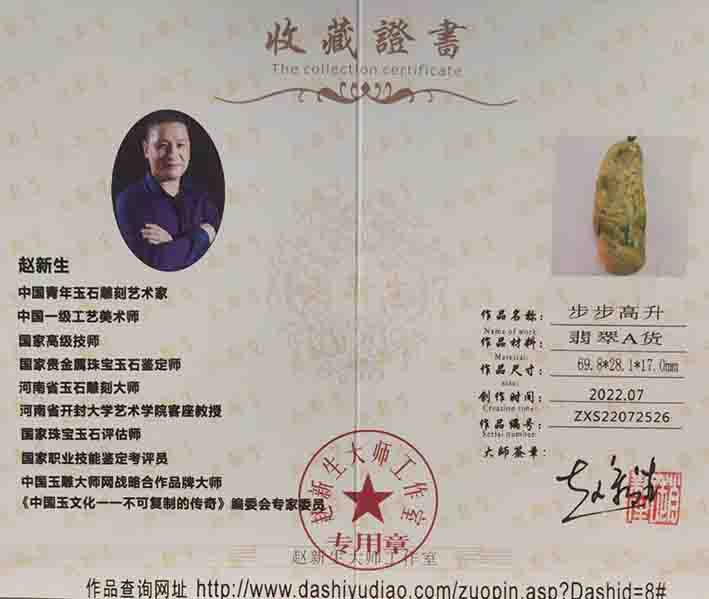 收藏證書
The collection certificate
赵新生
中国青年玉石雕刻艺术家
中国一级工艺美术师
国家高级技师
国家贵金属珠宝玉石鉴定师
河南省玉石雕刻大师
河南省开封大学艺术学院客座教授
国家珠宝玉石评估师
国家职业技能鉴定考评员
中国玉雕大师网战略合作品牌大师
《中国玉文化一一不可复制的传奇》编委会专家委员
作品名称: 步步高升
Name of work:
作品材料: 翡翠A货
Material:
作品尺寸: 69.8*28.1*17.0mm
size:
创作时间: 2022.07
Creation time:
作品编号: ZXS22072526
Serial number:
大师签章:
赵新生
赵新生大师工作室
专用章
赵新生大师工作室
作品查询网址 http://www.dashiyudiao.com/zuopin.asp?Dashid=8#